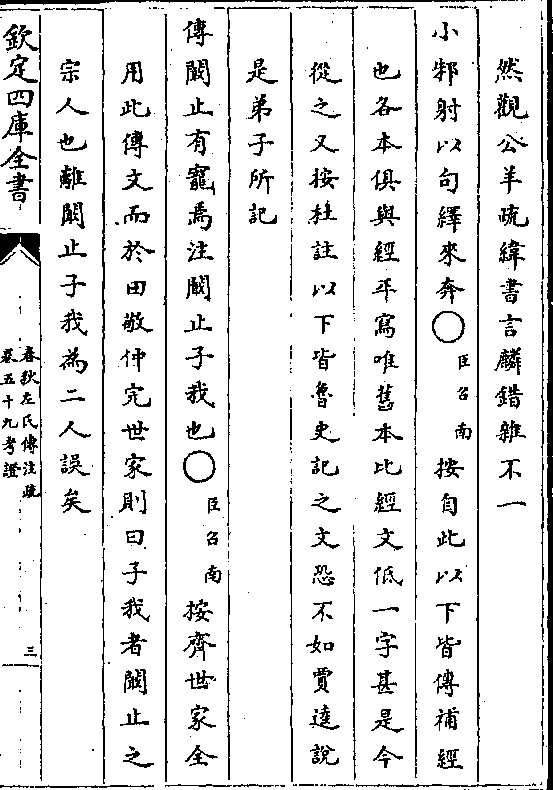 然觀公羊疏緯書言麟錯雜不一
小邾射以句繹來奔〇臣召南按自此以下皆傳補經
也各本俱與經平寫唯舊本比經文低一字甚是今
從之又按杜註以下皆魯史記之文恐不如賈逵說
是弟子所記
傳闞止有寵焉注闞止子我也〇臣召南按齊世家全
用此傳文而於田敬仲完世家則曰子我者闞止之
宗人也離闞止子我為二人誤矣
欽定四庫全書
春秋左氏傳注疏
卷五十九考證
三